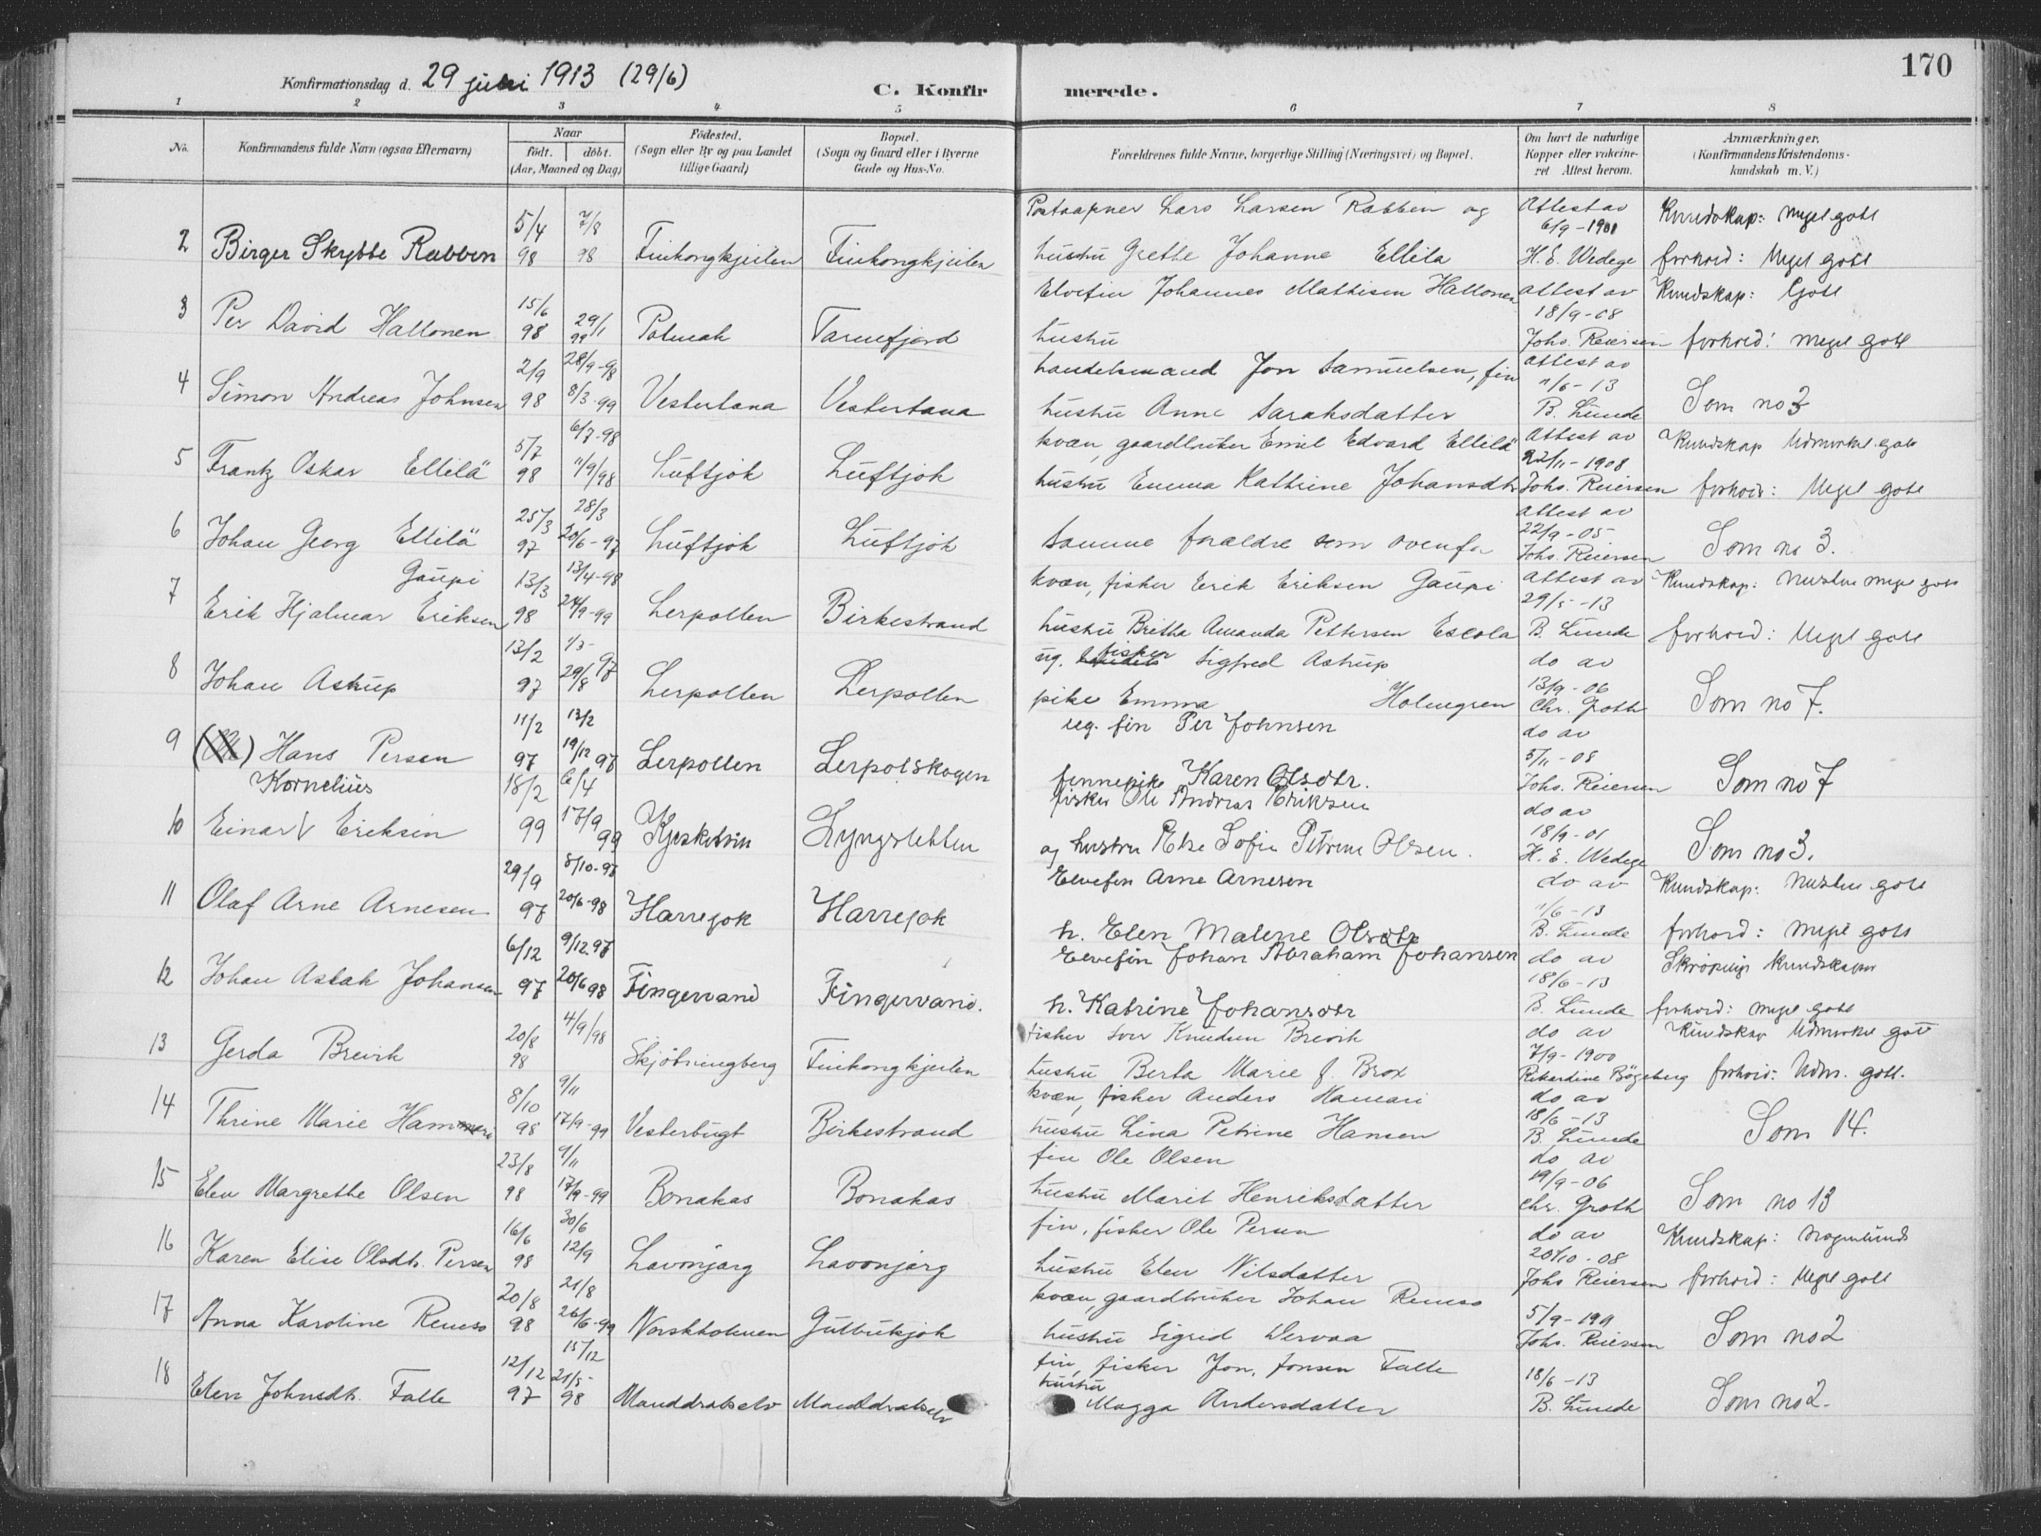 170
Konfirmationsdag d. 29 juni 1913 (29/6)
C. Konfirmerede.
1 2 3 4 5 6 7 8
No.
Konfirmandens fulde Navn (ogsaa Efternavn)
Naar
født. | døbt.
(Aar, Maaned og Dag)
Fødested.
(Sogn eller By og paa Landet
tillige Gaard)
Bopæl.
(Sogn og Gaard eller i Byerne
Gade og Hus-No.
Forældrenes fulde Navne, borgerlige Stilling (Næringsvei) og Bopæl.
Om havt de naturlige
Kopper eller vakcine-
ret Attest herom.
Anmærkninger.
(Konfirmandens Kristendoms-
kundskab m. V.)
2 Birger Skrybbe Rabben 5/4 98 7/8 98 Finkongkjeilen Finkongkjeilen
Lars Larsen Rabben og
hustru Grethe Johanne Ellila
Attest av 6/9-1901 H. E. Wedege
Kundskap: Meget godt
forhold: Meget godt
3 Per David Haltonen 15/6 98 29/1 99 Polmak Tarmfjord
Elvefin Johannes Mathisen Haltonen
hustru
attest av 18/9-08 Johs. Reiersen
Kundskap: Godt
forhold: meget godt
4 Simon Andreas Johnsen 2/9 98 28/9-98 8/3-99 Vestertana Vestertana
handelsmand Jon Samuelsen, fin
hustru Anne Saraksdatter
attest av 11/6-13 B. Lunde
Som no 3
5 Frantz Oskar Ellilä 5/7 98 6/7-98 11/9/98 Luftjok Luftjok
kvæn, gaardbruker Emil Edvard Ellilä
hustru Emma Kathrine Johansdtr
Attest av 22/11-1908 Johs. Reiersen
Kundskap Udmerket godt
forhold: Meget godt
6 Johan Georg Ellilä 25/3 97 28/3 20/6-97 Luftjok Luftjok
Samme forældre som ovenfor
attest av 22/9-05 Johs. Reiersen
Som no 3.
7 Erik Hjalmar Eriksen Gaupi 13/3 98 13/4-98 24/9-99 Lerpollen Birkestrand
kvæn, fisker Erik Eriksen Gaupi
hustru Britha Amanda Pettersen Escola
attest av 29/5-13 B. Lunde
Kundskap: næsten meget godt
forhold: Meget godt
8 Johan Astrup 13/2 97 1/3- 29/8 97 Lerpollen Lerpollen
ug. fisker Sigfred Astrup
pike Emma Holmgren
do av 13/9-06 Chr. Groth
Som no 7.
9 Hans Persen Kornelius 11/2 97 13/2 19/12 97 Lerpollen Lerpolskogen
ug. fin Per Johnsen
finnepike Karen Olsdtr.
do av 5/11-08 Johs. Reiersen
Som no 7
10 Einar Eriksen 18/2 99 6/4 17/9 99 Lyngsletten
fisker Ole Andreas Eriksen
og hustru Else Sofie Petrine Olsen.
do av 18/9-01 H. E. Wedege
Som no 3.
11 Olaf Arne Arnesen 29/9 97 8/10-97 20/6-98 Harrejok Harrejok
Elvefin Arne Arnesen
h. Elen Malene Olsdtr
do av 11/6-13 B. Lunde
Kundskap: næsten godt
forhold: meget godt
12 Johan Aslak Johansen 6/12 97 9/12 97 20/6 98 Fingervand Fingervand.
Elvefin Johan Abraham Johansen
h. Katrine Johansdtr
do av 18/6-13 B. Lunde
Skrøpelige kundskaper
forhold: meget godt
13 Gerda Breivik 20/8 98 4/9/98 Skjøtningberg Finkongkjeilen
fisker Knudsen Breivik
hustru Berta Marie f. Brox
do av 7/9-1900 Rikardine Bøgeberg
Kundskap Udmerket godt
forhold: Udm. godt.
14 Thrine Marie Hammari 8/10 98 9/11 17/9-99 Vesterbugt Birkestrand
kvæn, fisker Anders Hamari
hustru Lina Petrine Hansen
do av 18/6-13 B. Lunde
Som 14.
15 Elen Margrethe Olsen 23/8 98 9/11 17/9-99 Bonakas Bonakas
fin Ole Olsen
hustru Marit Henriksdatter
do av 19/9-06 Chr. Groth
Som no 13
16 Karen Elise Olsdtr. Persen 16/6 98 30/6 12/9 Lavonjarg Lavonjarg
fin, fisker Ole Persen
hustru Elen Nilsdatter
do av 20/10-08 Johs Reiersen
Kundskap:
forhold: Meget godt
17 Anna Karoline Remso 20/8 98 21/8 26/6-99 Norskholmen Gulbukjok
kvæn, gaardbruker Johan Remso
hustru Sigrid Dervaa
5/9- Johs. Reiersen
Som no 2
18 Elen Johnsdtr. Falle 12/12 97 15/12 21/5- 98 Manddratselv Manddratselv
fin, fisker Jon Jonsen Falle
hustru Magga Andersdatter
18/6-13 B. Lunde
Som no 2.